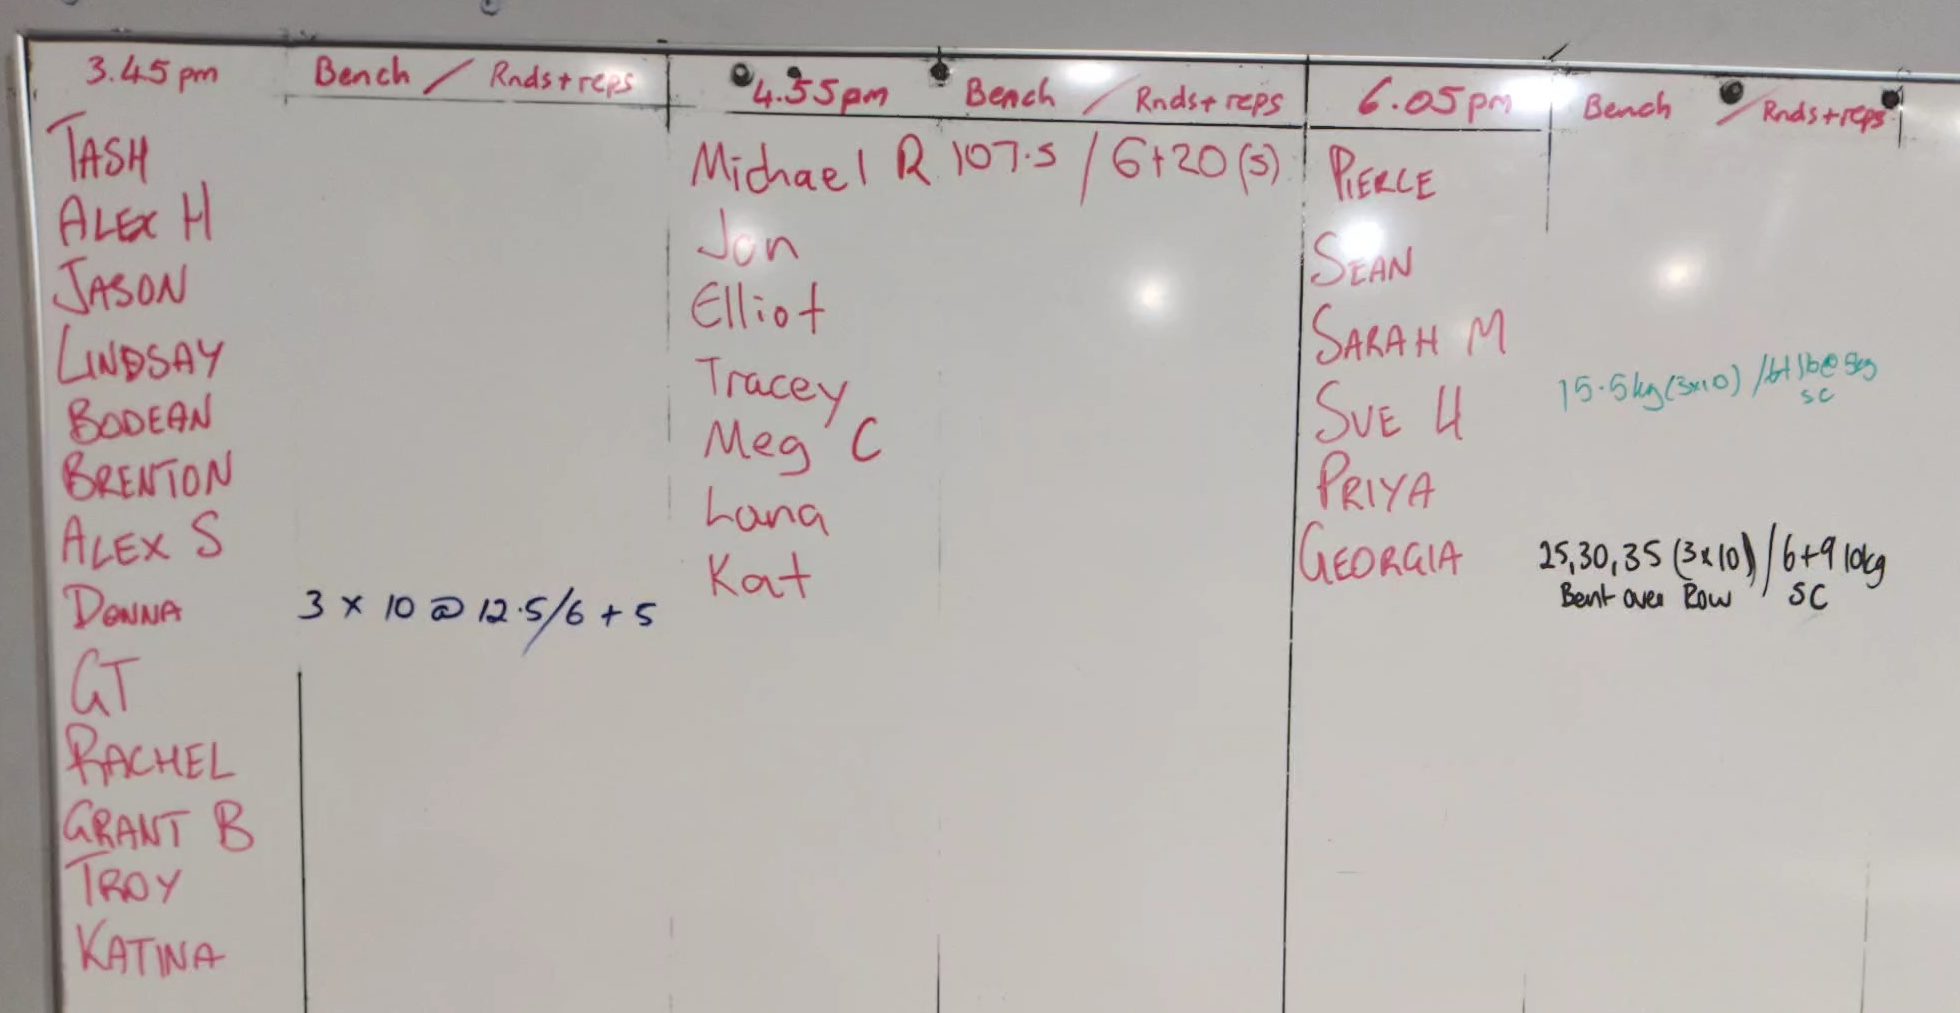 3.45pm Bench / Rnds+reps
TASH
ALEX H
JASON
LINDSAY
BODEAN
BRENTON
ALEX S
DONNA 3 x 10 @ 12.5/6 + 5
GT
RACHEL
GRANT B
TROY
KATINA
4.55pm Bench / Rnds+reps
Michael R 107.5 / 6+20 (s)
Jon
Elliot
Tracey
Meg C
Lana
Kat
6.05pm Bench / Rnds+reps
PIERCE
SEAN
SARAH M
SUE H 15.5kg (3x10) / 6+16@5kg
SC
PRIYA
GEORGIA 25,30,35 (3x10) / 6+9 10kg
Bent over Row SC